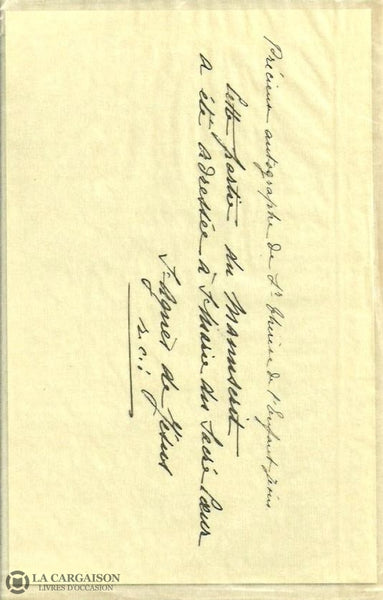 Précieux autographe de Sr Thérèse de l'Enfant Jésus
Cette partie du Manuscrit
a été adressée à Sr Marie du Sacré Cœur
Sr Agnès de Jésus
r.c.i
LA CARGAISON
LIVRES D'OCCASION